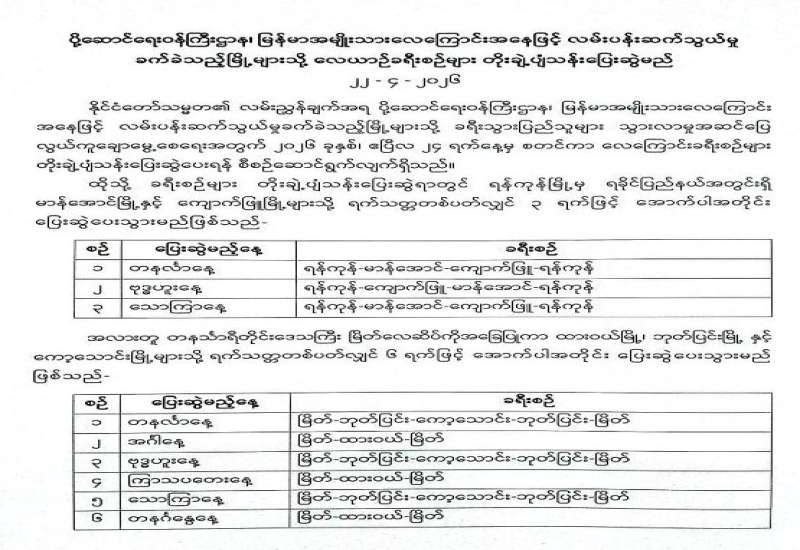 ပို့ဆောင်ရေးဝန်ကြီးဌာန၊ မြန်မာအမျိုးသားလေကြောင်းအနေဖြင့် လမ်းပန်းဆက်သွယ်မှု
ခက်ခဲသည့်မြို့များသို့ လေယာဉ်ခရီးစဉ်များ တိုးချဲ့ပျံသန်းပြေးဆွဲမည်
၂၂ - ၄ - ၂၀၂၆
နိုင်ငံတော်သမ္မတ၏ လမ်းညွှန်ချက်အရ ပို့ဆောင်ရေးဝန်ကြီးဌာန၊ မြန်မာအမျိုးသားလေကြောင်း
အနေဖြင့် လမ်းပန်းဆက်သွယ်မှုခက်ခဲသည့်မြို့များသို့ ခရီးသွားပြည်သူများ သွားလာမှုအဆင်ပြေ
လွယ်ကူချောမွေ့စေရေးအတွက် ၂၀၂၆ ခုနှစ်၊ ဧပြီလ ၂၄ ရက်နေ့မှ စတင်ကာ လေကြောင်းခရီးစဉ်များ
တိုးချဲ့ပျံသန်းပြေးဆွဲပေးရန် စီစဉ်ဆောင်ရွက်လျက်ရှိသည်။
ထိုသို့ ခရီးစဉ်များ တိုးချဲ့ပျံသန်းပြေးဆွဲရာတွင် ရန်ကုန်မြို့မှ ရခိုင်ပြည်နယ်အတွင်းရှိ
မာန်အောင်မြို့နှင့် ကျောက်ဖြူမြို့များသို့ ရက်သတ္တတစ်ပတ်လျှင် ၃ ရက်ဖြင့် အောက်ပါအတိုင်း
ပြေးဆွဲပေးသွားမည်ဖြစ်သည်-
စဉ် ပြေးဆွဲမည့်နေ့ ခရီးစဉ်
၁ တနင်္လာနေ့ ရန်ကုန်-မာန်အောင်-ကျောက်ဖြူ-ရန်ကုန်
၂ ဗုဒ္ဓဟူးနေ့ ရန်ကုန်-ကျောက်ဖြူ-မာန်အောင်-ရန်ကုန်
၃ သောကြာနေ့ ရန်ကုန်-မာန်အောင်-ကျောက်ဖြူ-ရန်ကုန်
အလားတူ တနင်္သာရီတိုင်းဒေသကြီး မြိတ်လေဆိပ်ကိုအခြေပြုကာ ထားဝယ်မြို့၊ ဘုတ်ပြင်းမြို့ နှင့်
ကော့သောင်းမြို့များသို့ ရက်သတ္တတစ်ပတ်လျှင် ၆ ရက်ဖြင့် အောက်ပါအတိုင်း ပြေးဆွဲပေးသွားမည်
ဖြစ်သည်-
စဉ် ပြေးဆွဲမည့်နေ့ ခရီးစဉ်
၁ တနင်္လာနေ့ မြိတ်-ဘုတ်ပြင်း-ကော့သောင်း-ဘုတ်ပြင်း-မြိတ်
၂ အင်္ဂါနေ့ မြိတ်-ထားဝယ်-မြိတ်
၃ ဗုဒ္ဓဟူးနေ့ မြိတ်-ဘုတ်ပြင်း-ကော့သောင်း-ဘုတ်ပြင်း-မြိတ်
၄ ကြာသပတေးနေ့ မြိတ်-ထားဝယ်-မြိတ်
၅ သောကြာနေ့ မြိတ်-ဘုတ်ပြင်း-ကော့သောင်း-ဘုတ်ပြင်း-မြိတ်
၆ တနင်္ဂနွေနေ့ မြိတ်-ထားဝယ်-မြိတ်